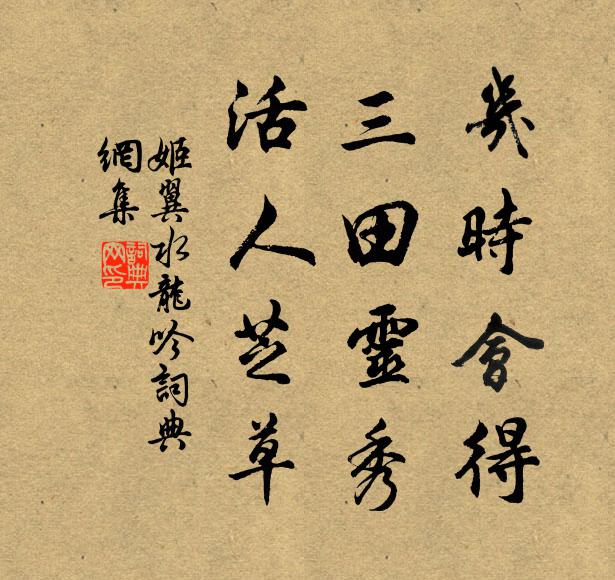 幾時會得
三田靈秀
活人芝草
姬翼水龍吟詞典
網集
詞典
网印